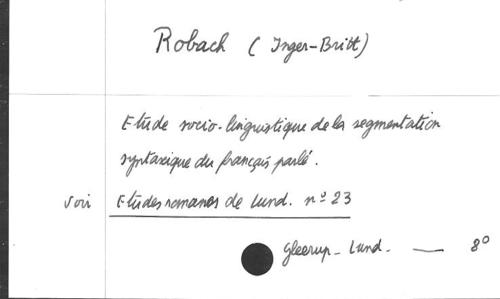 Robach (Inger-Britt)
Etude socio-linguistique de la segmentation
syntaxique du français parlé.
voir Etudes romanes de Lund. nº 23
Gleerup - Lund. — 8º